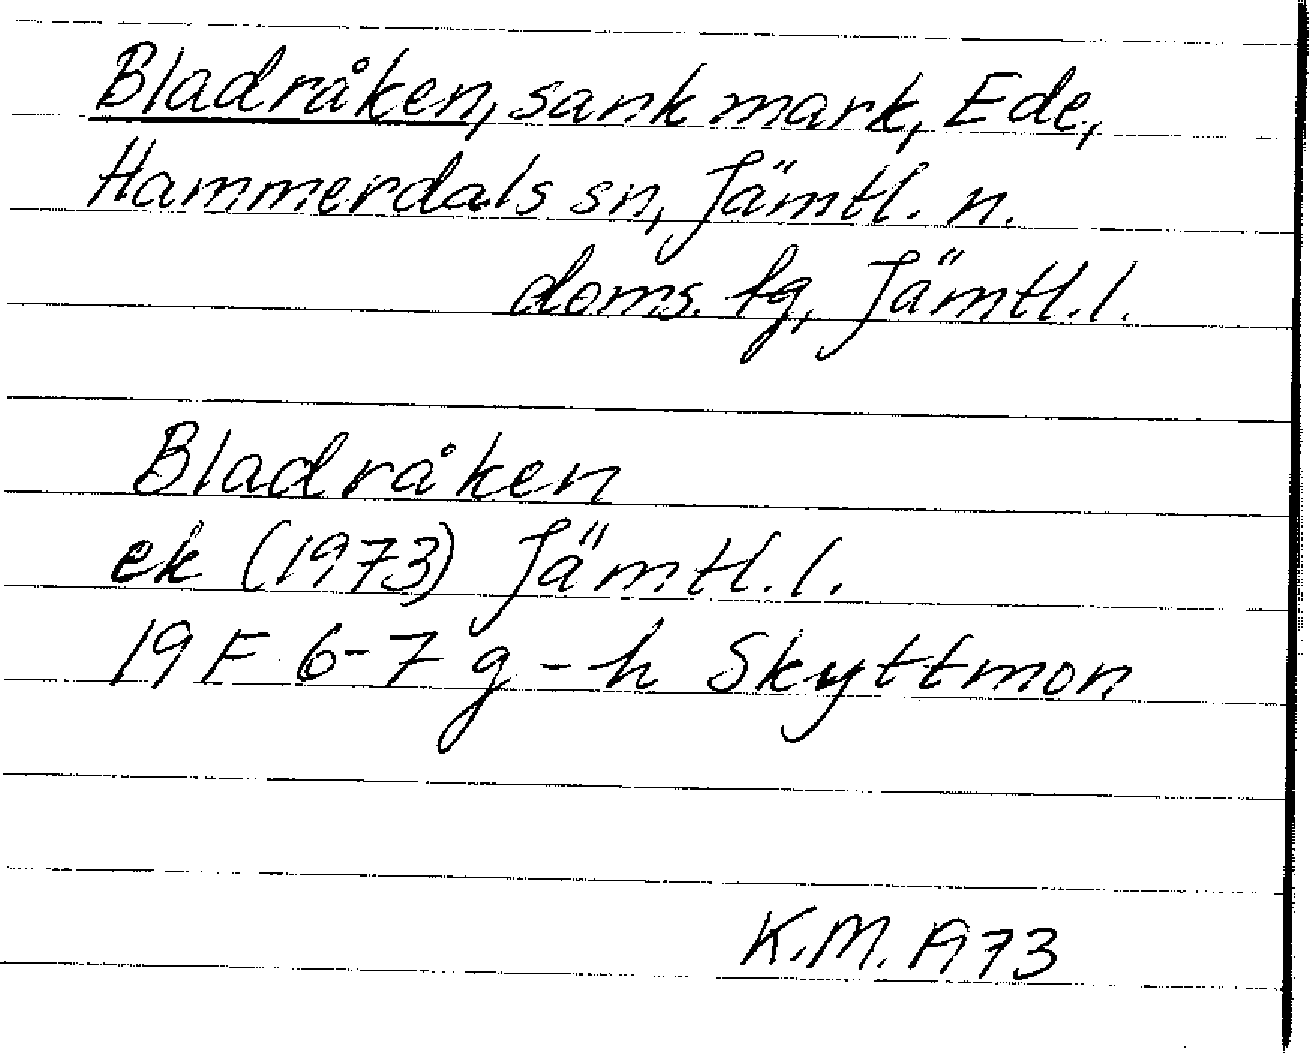 Bladråken, sank mark, Ede,
Hammerdals sn, Jämtl. n.
doms. tg, Jämtl. l.
Bladråken
ek (1973) Jämtl. l.
19 F 6-7 g-h Skyttmon
K.M. 1973